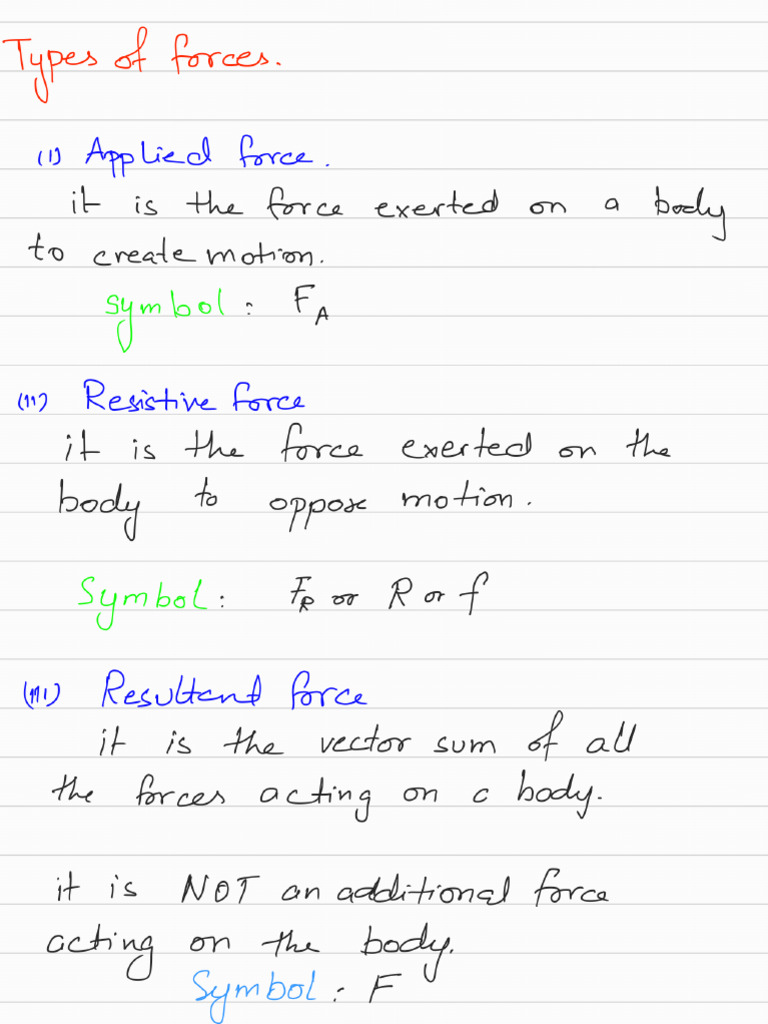 Types of forces.
(i) Applied force.
it is the force exerted on a body
to create motion.
Symbol: F_A
(ii) Resistive force
it is the force exerted on the
body to oppose motion.
Symbol: F_R or R or f
(iii) Resultant force
it is the vector sum of all
the forces acting on a body.
it is NOT an additional force
acting on the body.
Symbol: F